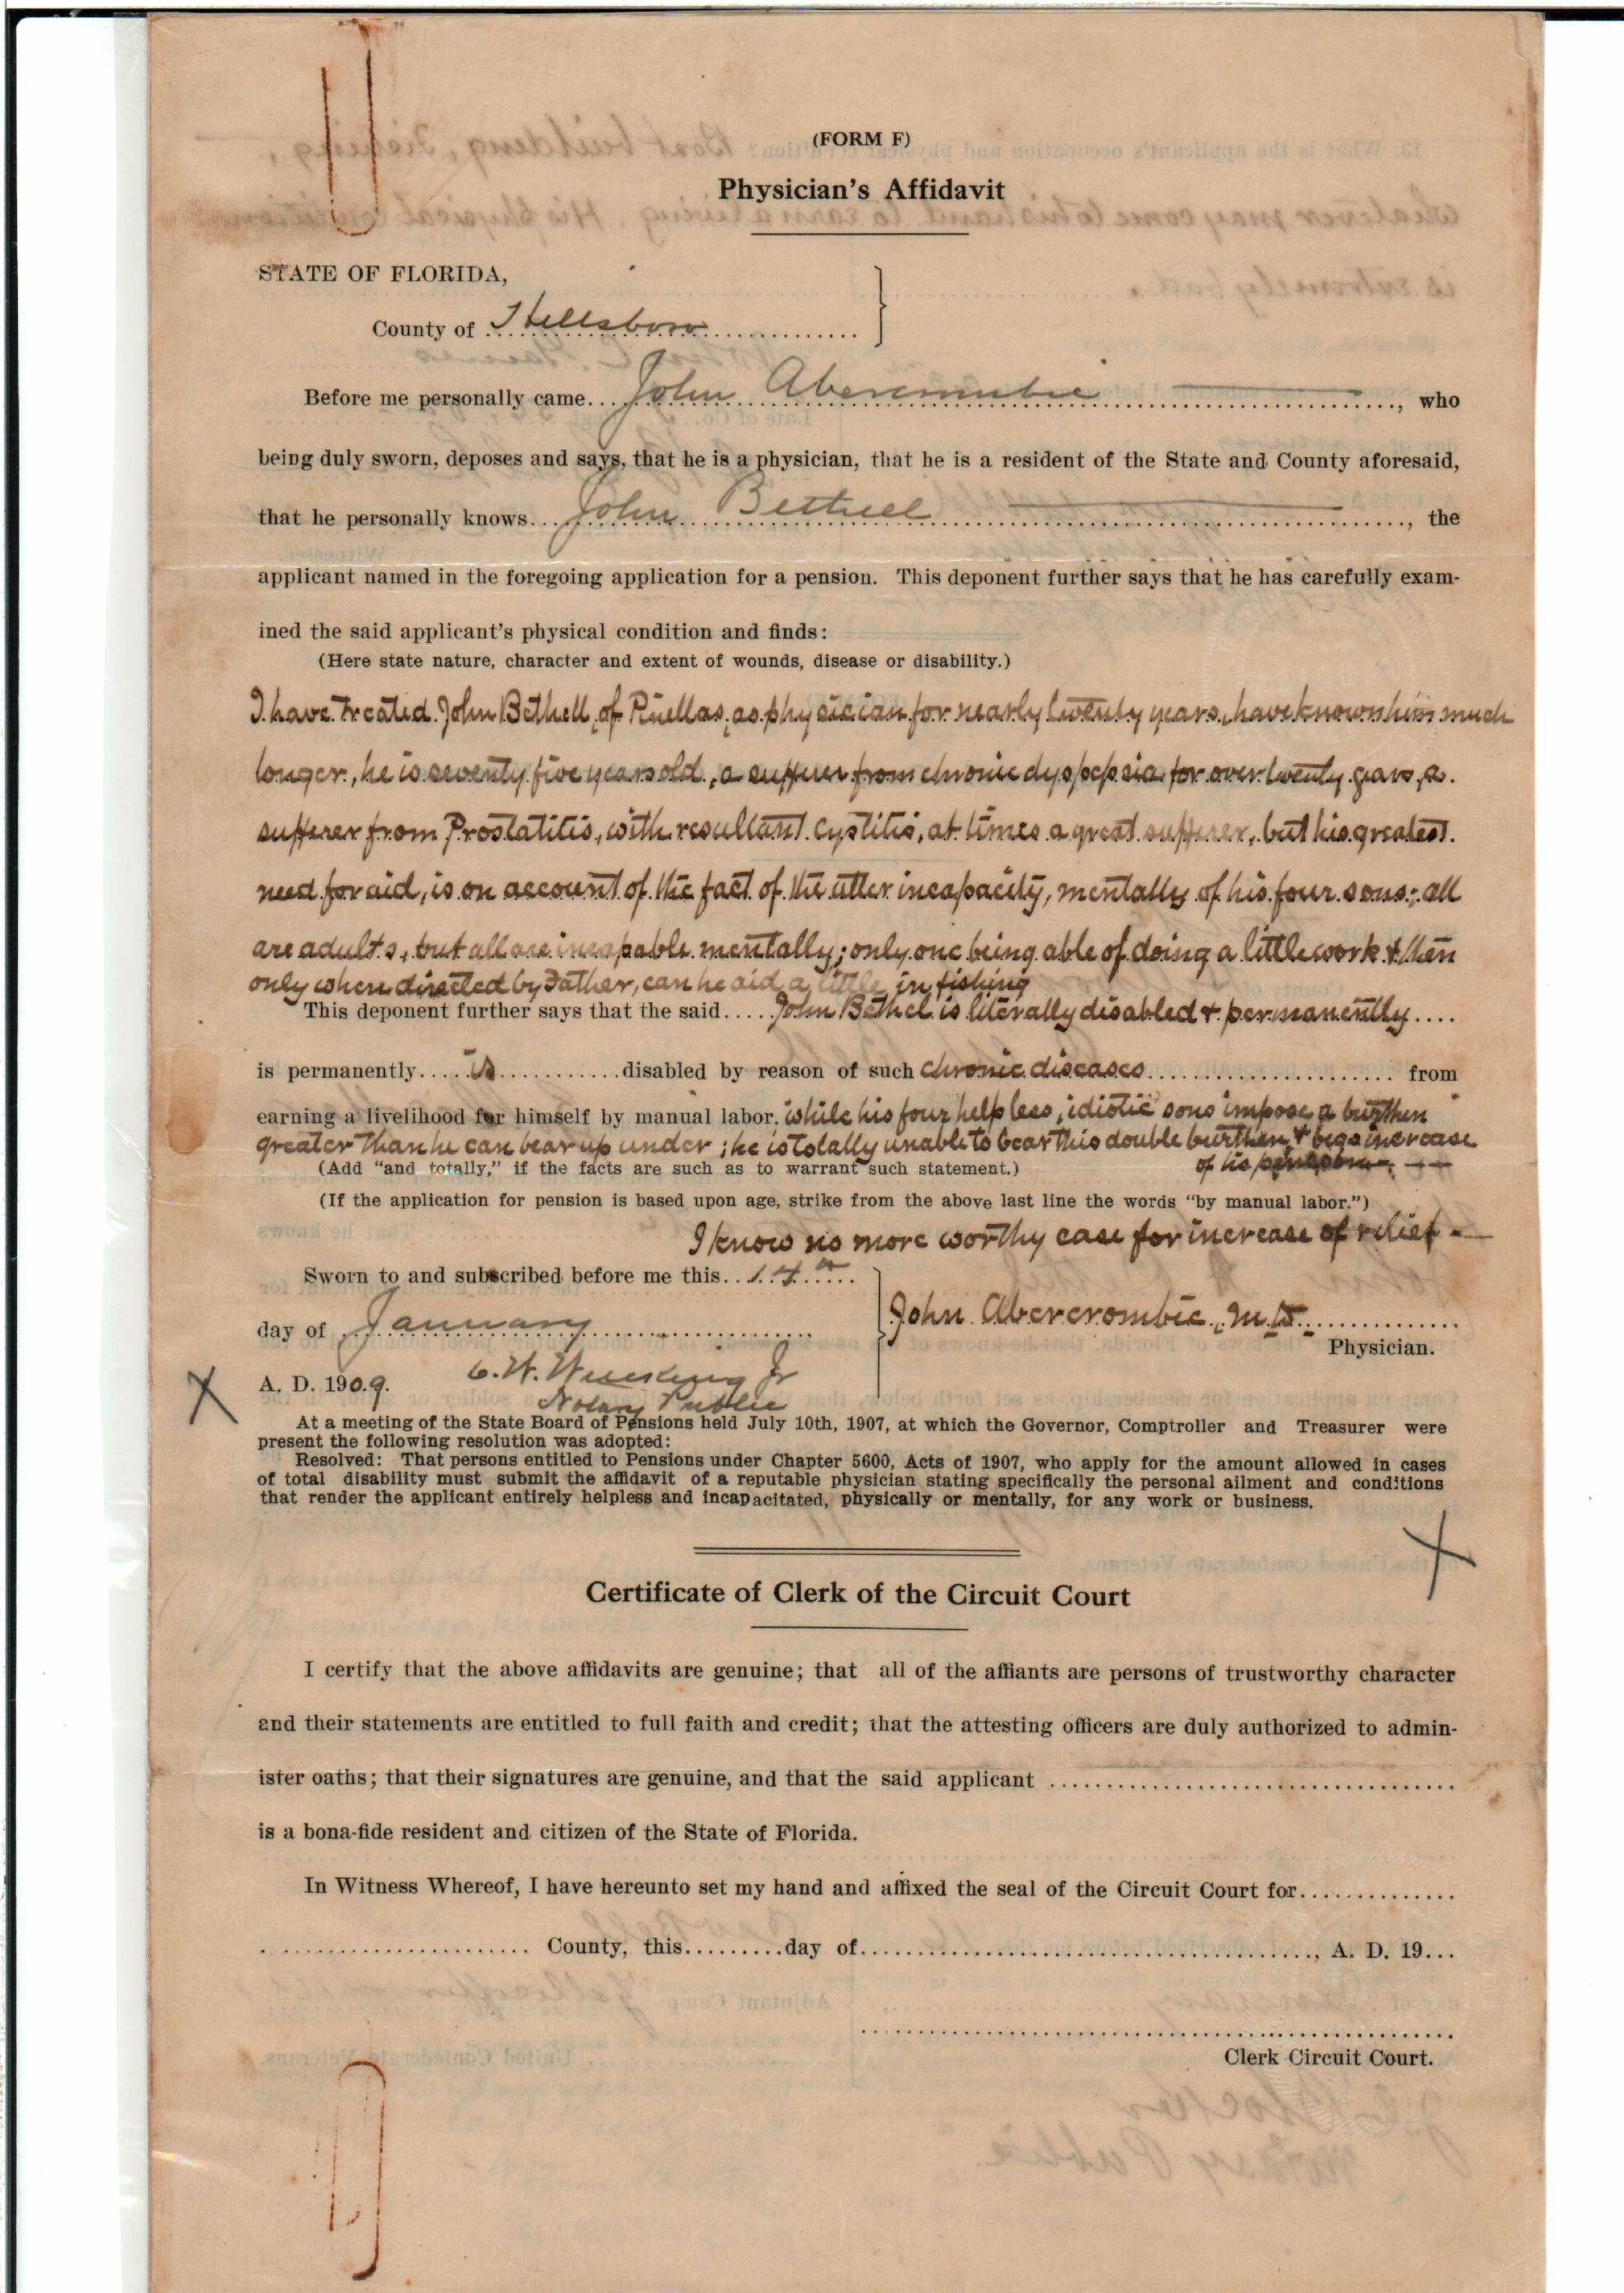 (FORM F)
Physician's Affidavit
STATE OF FLORIDA,
County of Hillsboro
Before me personally came John Abercrombie, who
being duly sworn, deposes and says, that he is a physician, that he is a resident of the State and County aforesaid,
that he personally knows John Bethell, the
applicant named in the foregoing application for a pension. This deponent further says that he has carefully exam-
ined the said applicant's physical condition and finds:
(Here state nature, character and extent of wounds, disease or disability.)
I have treated John Bethell, of Pinellas, as physician for nearly twenty years, have known him much
longer, he is seventy five years old, a sufferer from chronic dyspepsia for over twenty years, a
sufferer from Prostatitis, with resultant cystitis, at times a great sufferer, but his greatest
need for aid, is on account of the fact of the utter incapacity, mentally of his four sons; all
are adults, but all are incapable mentally; only one being able of doing a little work & then
only when directed by Father, can he aid a little in fishing
This deponent further says that the said John Bethel is literally disabled & permanently
is permanently is disabled by reason of such chronic diseases from
earning a livelihood for himself by manual labor. while his four helpless, idiotic sons impose a burthen
greater than he can bear up under; he is totally unable to bear this double burthen & begs increase
(Add "and totally," if the facts are such as to warrant such statement.) of his pension
(If the application for pension is based upon age, strike from the above last line the words "by manual labor.")
I know no more worthy case for increase of relief
Sworn to and subscribed before me this 14th
day of January
John Abercrombie, M.D.
Physician.
A. D. 1909. C. W. Jr
Notary Public
At a meeting of the State Board of Pensions held July 10th, 1907, at which the Governor, Comptroller and Treasurer were
present the following resolution was adopted:
Resolved: That persons entitled to Pensions under Chapter 5600, Acts of 1907, who apply for the amount allowed in cases
of total disability must submit the affidavit of a reputable physician stating specifically the personal ailment and conditions
that render the applicant entirely helpless and incapacitated, physically or mentally, for any work or business.
Certificate of Clerk of the Circuit Court
I certify that the above affidavits are genuine; that all of the affiants are persons of trustworthy character
and their statements are entitled to full faith and credit; that the attesting officers are duly authorized to admin-
ister oaths; that their signatures are genuine, and that the said applicant
is a bona-fide resident and citizen of the State of Florida.
In Witness Whereof, I have hereunto set my hand and affixed the seal of the Circuit Court for
County, this day of , A. D. 19
Clerk Circuit Court.